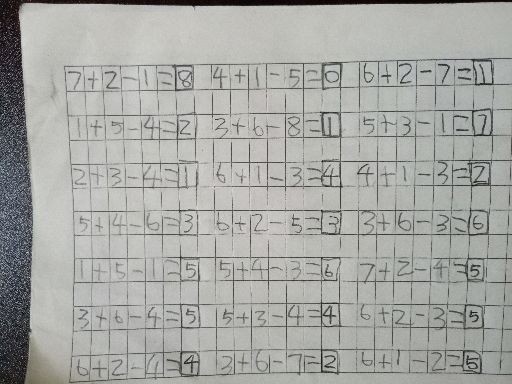 7+2-1=8 4+1-5=0 6+2-7=1
1+5-4=2 3+6-8=1 5+3-1=7
2+3-4=1 6+1-3=4 4+1-3=2
5+4-6=3 6+2-5=3 3+6-3=6
1+5-1=5 5+4-3=6 7+2-4=5
3+6-4=5 5+3-4=4 6+2-3=5
6+2-4=4 3+6-7=2 6+1-2=5